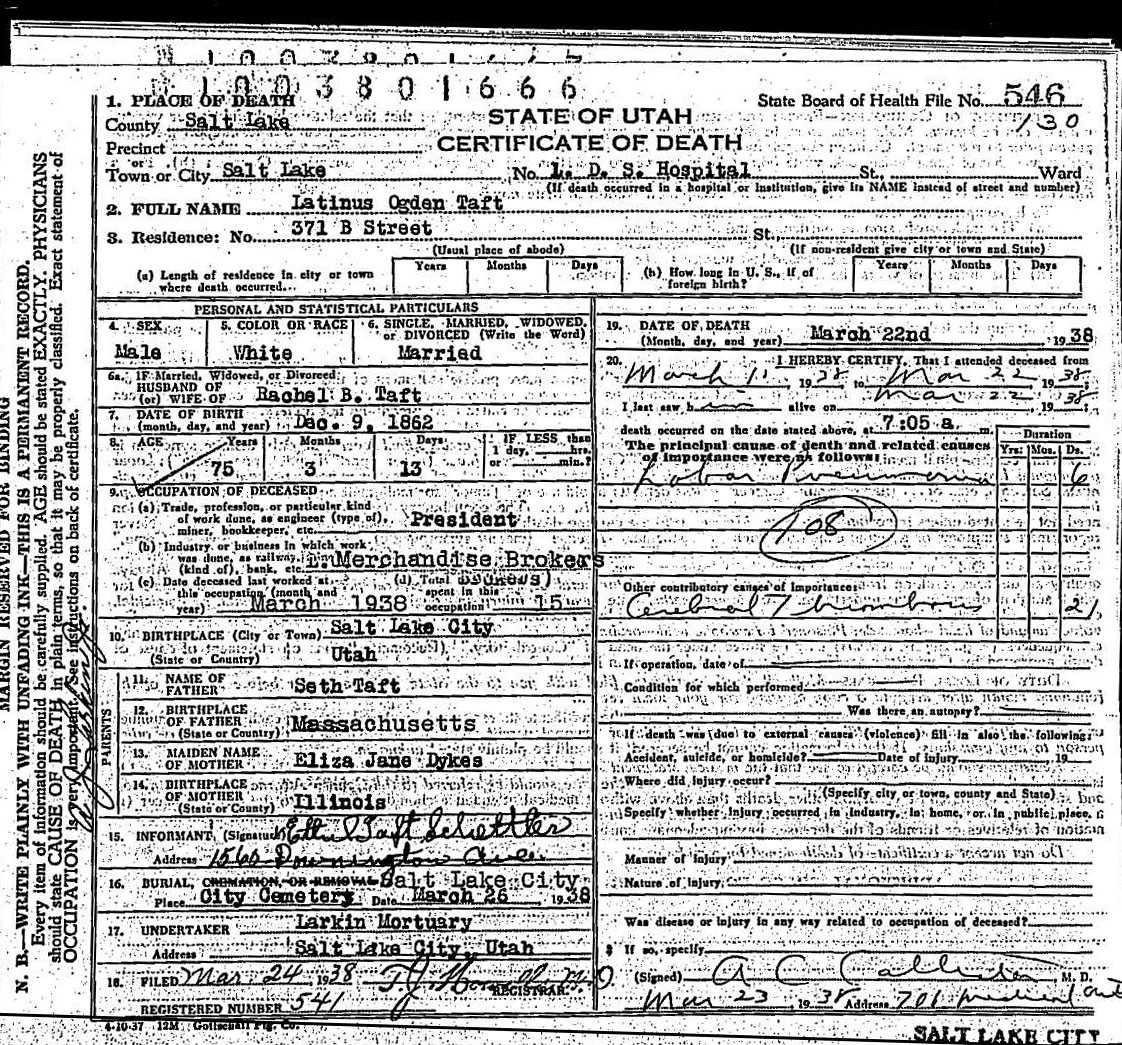 1003801666
State Board of Health File No. 546
130
STATE OF UTAH
CERTIFICATE OF DEATH
1. PLACE OF DEATH
County Salt Lake
Precinct
or
Town or City Salt Lake No. L. D. S. Hospital St., Ward
(If death occurred in a hospital or institution, give its NAME instead of street and number)
2. FULL NAME Latinus Ogden Taft
3. Residence: No. 371 B Street St.,
(Usual place of abode) (If non-resident give city or town and State)
(a) Length of residence in city or town where death occurred Years Months Days
(h) How long in U. S., if of foreign birth? Years Months Days
PERSONAL AND STATISTICAL PARTICULARS
4. SEX
Male
5. COLOR OR RACE
White
6. SINGLE, MARRIED, WIDOWED, or DIVORCED (Write the Word)
Married
6a. IF Married, Widowed, or Divorced
HUSBAND OF
(or) WIFE OF Rachel B. Taft
7. DATE OF BIRTH
(month, day, and year) Dec. 9, 1862
8. AGE Years Months Days IF LESS than
1 day, hrs.
or min.?
75 3 13
9. OCCUPATION OF DECEASED
(a) Trade, profession, or particular kind
of work done, as engineer (type of),
miner, bookkeeper, etc. President
(b) Industry or business in which work
was done, as railway,
(kind of), bank, etc. Merchandise Brokers
(c) Date deceased last worked at
this occupation (month and
year) March 1938
(d) Total
spent in this
occupation 15
10. BIRTHPLACE (City or Town) Salt Lake City
(State or Country) Utah
PARENTS
11. NAME OF
FATHER Seth Taft
12. BIRTHPLACE
OF FATHER
(State or Country) Massachusetts
13. MAIDEN NAME
OF MOTHER Eliza Jane Dykes
14. BIRTHPLACE
OF MOTHER
(State or County) Illinois
15. INFORMANT, (Signature) Ethel Taft Schettler
Address 1560 Downington Ave
16. BURIAL, CREMATION, OR REMOVAL Salt Lake City
Place City Cemetery Date March 26 1938
17. UNDERTAKER Larkin Mortuary
Address Salt Lake City, Utah
18. FILED Mar. 24 1938
REGISTRAR
REGISTERED NUMBER 541
4-10-37 12M Gottschall Ptg. Co.
19. DATE OF DEATH
(Month, day, and year) March 22nd 1938
20. I HEREBY CERTIFY, That I attended deceased from
March 1938, to Mar 22 1938;
I last saw h alive on Mar 22 1938;
death occurred on the date stated above, at 7:05 a m.
The principal cause of death and related causes
of importance were as follows:
Duration
Yrs. Mos. Ds.
Lobar Pneumonia 6
108
Other contributory causes of importance:
Cerebral Thrombosis 21
If operation, date of
Condition for which performed
Was there an autopsy?
If death was due to external causes (violence) fill in also the following:
Accident, suicide, or homicide? Date of injury 19
Where did injury occur?
(Specify city or town, county and State)
Specify whether injury occurred in industry, in home, or in public place.
Manner of injury
Nature of injury
Was disease or injury in any way related to occupation of deceased?
If so, specify
(Signed) A C Callister M. D.
Mar 23 1938 Address 701 Medical Arts
SALT LAKE CITY
MARGIN RESERVED FOR BINDING
N. B.—WRITE PLAINLY WITH UNFADING INK—THIS IS A PERMANENT RECORD.
Every item of information should be carefully supplied. AGE should be stated EXACTLY. PHYSICIANS
should state CAUSE OF DEATH in plain terms, so that it may be properly classified. Exact statement of
OCCUPATION is very important. See instructions on back of certificate.